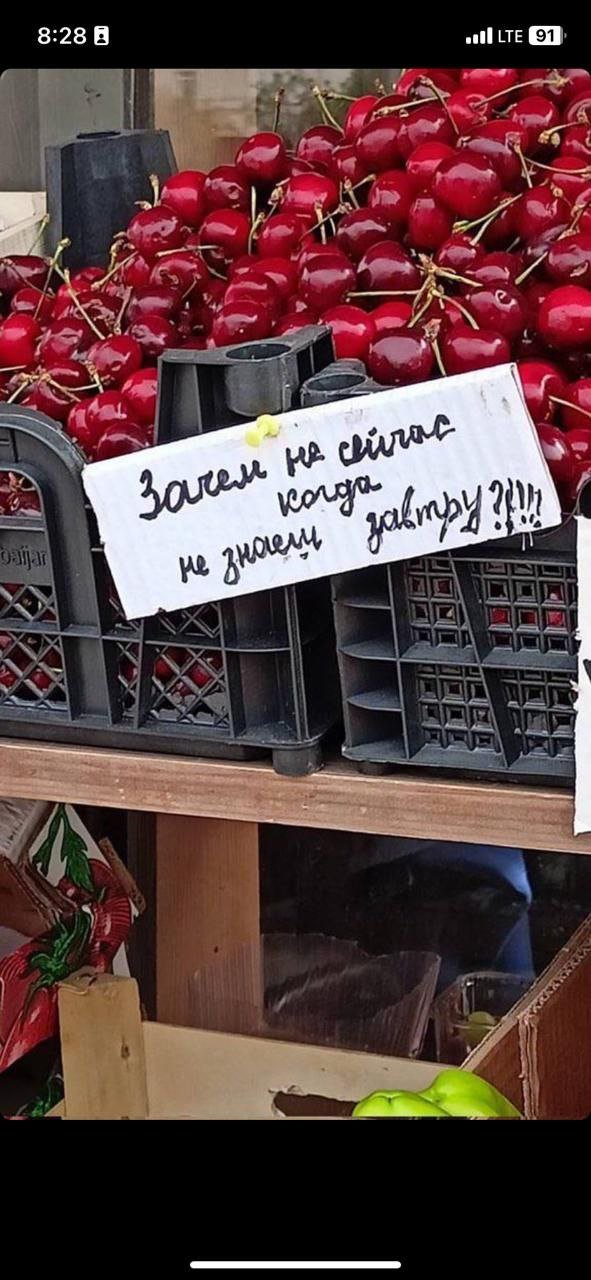 8:28
LTE 91
Зачем не сейчас
когда
не знаеш завтру?!!!
baijan